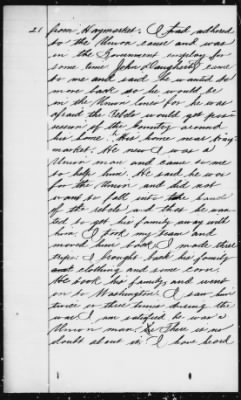 21 from Haymarket. I had adhered
to the Union cause and was
in the Government employ for
some time John Daughesty came
to me and said he wanted to
move back so he would be
in the Union lines for he was
afraid the Rebels would get poss-
ession of the Country around
his home. His home near Hay-
market. He new I was a
Union man and came to me
to help him. He said he was
for the Union and did not
want to fall into the hands
of the rebels and that he wan-
ted to get his family away with
him. I took my team and
moved him back I made three
trips. I brought back his family
and clothing and some corn.
He took his family and went
on to Washington. I saw him
twice or three times during the
war I am satisfied he was a
Union man. There is no
doubt about it I have heard